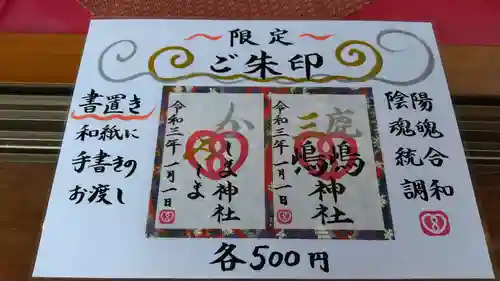 ～限定～
ご朱印
書置き
和紙に
手書きの
お渡し
令和三年一月一日
かしま神社
みしま
令和三年一月一日
三嶋
虎嶋神社
陰陽
魂魄
統合
調和
各500円